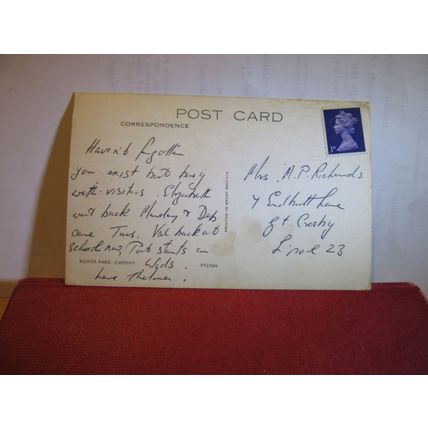 POST CARD
CORRESPONDENCE
Haven't forgotten
you exist but busy
with visitors. Elizabeth
went back Monday & Deb
came Tues. Val back at
school now, starts on
Weds.
Love Thelma.
ROATH PARK, CARDIFF
PT27686
PRINTED IN GREAT BRITAIN
3D
Mrs. M.P. Richards
4 Lane
Gt Crosby
L'pool 23